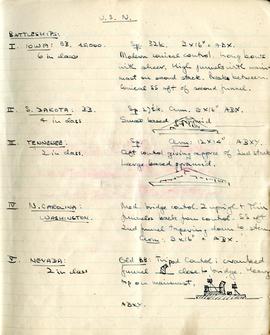 U.S.N.
BATTLESHIPS:
I. IOWA: BB. 45000. Sp. 32k. 9 x 16" + ABX.
6 in class Modern conical control. Long bows
with sheer. High funnels with
mast on second stack. Breaks between
conical SS aft of second funnel.
II. S. DAKOTA: BB. Sp. 27½k. Arm. 9 x 16" ABX.
4 in class Small based
III. TENNESSEE: BB. Arm: 12 x 14" ABXY.
2 in class Aft control giving appce of 2nd stack
Large based pyramid.
IV N. CAROLINA: Med. bridge control. 2 upright & thin
WASHINGTON. funnels back from control SS aft
2nd funnel tapering down to stern
Arm: 9 x 16" ABX.
V NEVADA: Old BB: Tripod Control: cranked
2 in class funnel close to bridge. Heavy
top on mainmast.
ABXY.